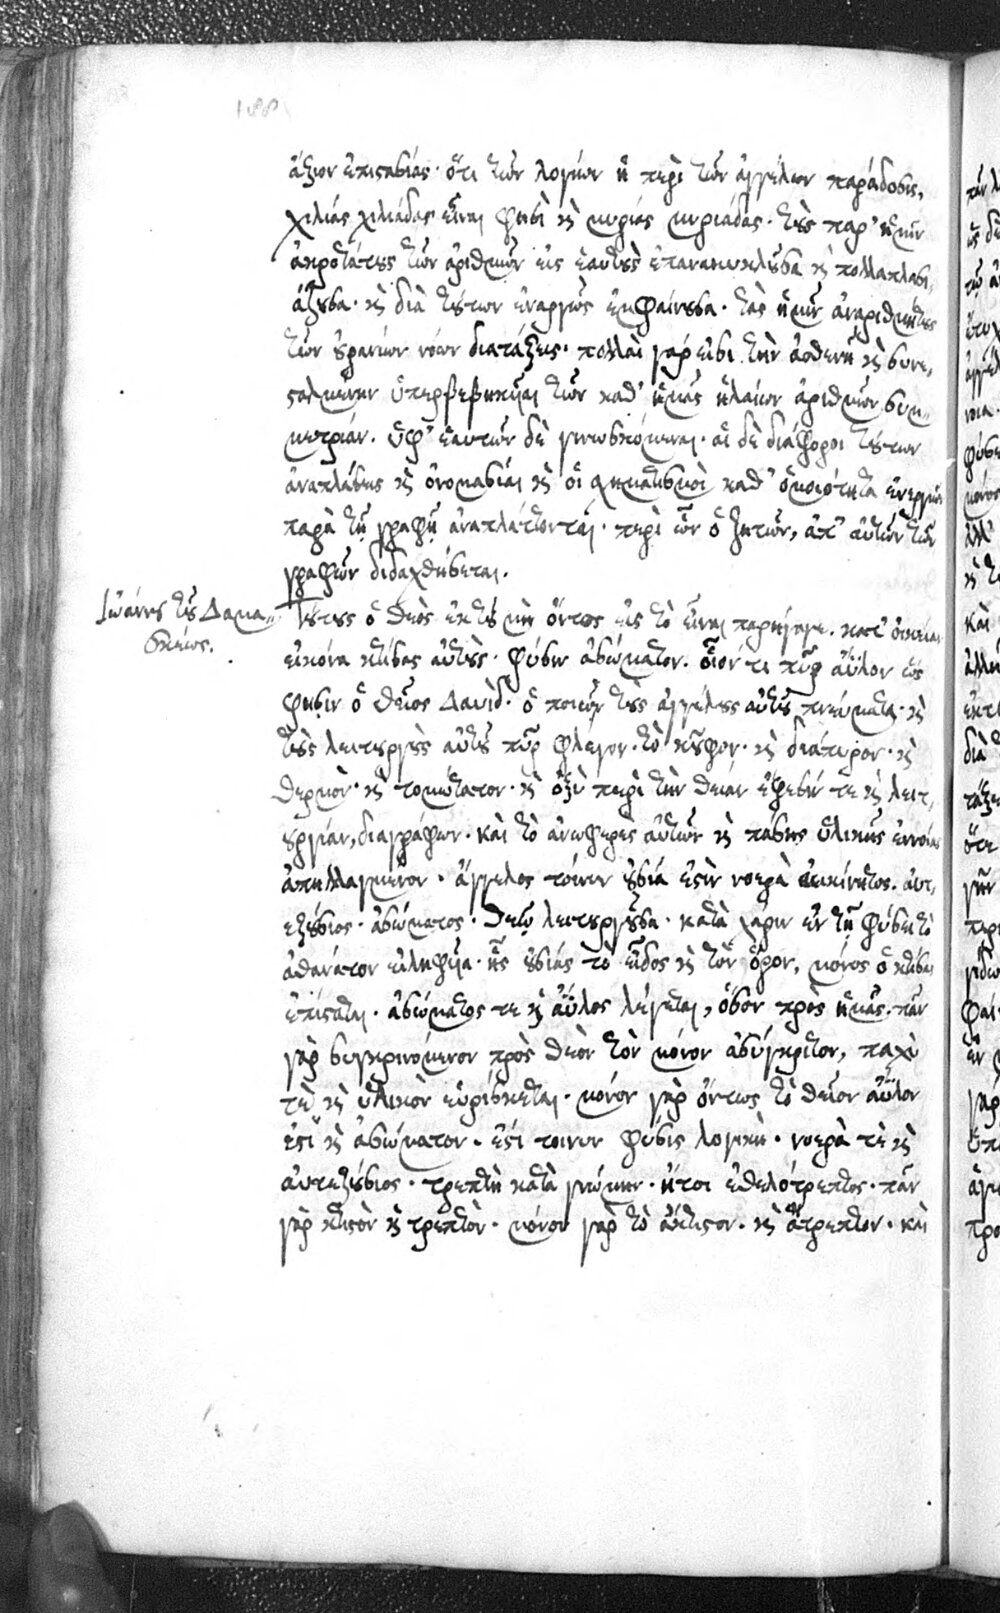 ἄξιον ἐπιστασίας· ὅτι τῶν λογίων ἡ περὶ τῶν ἀγγέλων παράδοσις,
χιλιάς χιλιάδας εἶναι φησὶ καὶ μυρίας μυριάδας· τοὺς παρ' ἡμῖν
ἀκροτάτους τῶν ἀριθμῶν εἰς ἑαυτοὺς ἐπανακυκλοῦσα καὶ πολλαπλασι,
άζουσα· καὶ διὰ τούτων ἐναργῶς ἐκφαίνουσα· τὰς ἡμῖν ἀναριθμήτους
τῶν οὐρανίων νόων διατάξεις· πολλαὶ γάρ εἰσι τὴν ἀσθενῆ καὶ συνε,
σταλμένην ὑπερβεβηκυῖαι τῶν καθ' ἡμᾶς ὑλαίων ἀριθμῶν συμ,,
μετρίαν. ὑφ' ἑαυτῶν δὲ γινωσκόμεναι· αἱ δὲ διάφοροι τούτων
ἀναπλάσεις καὶ ὀνομασίαι καὶ οἱ σχηματισμοὶ καθ' ὁμοιότητα
παρὰ τῇ γραφῇ ἀναπλάττονται· περὶ ὧν ὁ ζητῶν, ἀπ' αὐτῶν τῶν
γραφῶν διδαχθήσεται.
Ἰωάννης τοῦ Δαμα,,
σκέως.
Τούτους ὁ θεὸς ἐκ τοῦ μὴ ὄντος εἰς τὸ εἶναι παρήγαγε. κατ' οἰκείαν
εἰκόνα κτίσας αὐτοὺς· φύσιν ἀσώματον. οἷόν τι πῦρ ἄϋλον ὥς
φησιν ὁ θεῖος Δαυὶδ· ὁ ποιῶν τοὺς ἀγγέλους αὐτοῦ πνεύματα· καὶ
τοὺς λειτουργοὺς αὐτοῦ πῦρ φλέγον. τὸ κοῦφον· καὶ διάπυρον· καὶ
θερμὸν· καὶ τομώτατον· καὶ ὀξὺ περὶ τὴν θείαν ἔφεσίν τε καὶ λειτ,
ουργίαν, διαγράφων· καὶ τὸ ἀνωφερες αὐτῶν καὶ πάσης ὑλικῆς ἐννοίας
ἀπηλλαγμένον· ἄγγελος τοίνυν οὐσία ἐστὶν νοερὰ ἀεικίνητος. αὐτ,
εξούσιος· ἀσώματος· θεῷ λειτουργοῦσα· κατὰ χάριν ἐν τῇ φύσει τὸ
ἀθάνατον εἰληφυῖα· ἧς οὐσίας τὸ εἶδος καὶ τὸν ὅρον, μόνος ὁ κτίσας
ἐπίσταται. ἀσώματος τε καὶ ἄϋλος λέγεται, ὅσον πρὸς ἡμᾶς. πᾶν
γὰρ συγκρινόμενον πρὸς θεὸν τὸν μόνον ἀσύγκριτον, παχύ
τε καὶ ὑλικὸν εὑρίσκεται· μόνον γὰρ ὄντως τὸ θεῖον ἄϋλον
ἐστὶ καὶ ἀσώματον. ἐστὶ τοίνυν φύσις λογικὴ· νοερὰ τε καὶ
αὐτεξούσιος· τρεπτὴ κατὰ γνώμην· ἤτοι ἐθελότρεπτος· πᾶν
γὰρ κτιστὸν καὶ τρεπτὸν· μόνον γὰρ τὸ ἄκτιστον· καὶ ἄτρεπτον· καὶ